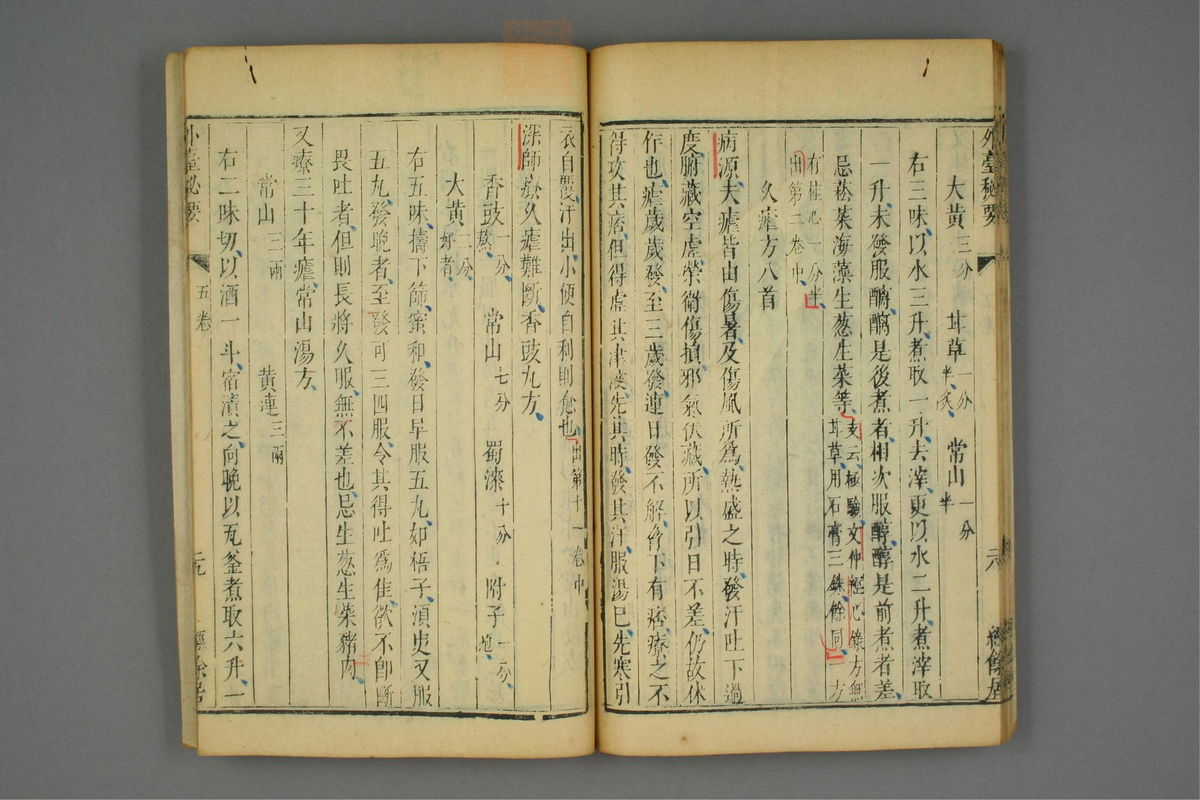 外臺秘要
大黃三分 甘草一分半炙 常山一分半
右三味以水三升煮取一升去滓更以水二升煮滓取
一升未發服醨醨是後煮者相次服醇醇是前煮者差
忌菘菜海藻生葱生菜等支云極驗文仲經心錄方無甘草用石膏三銖餘同一方
有桂心一分半出第二卷中
久瘧方八首
病源夫瘧皆由傷暑及傷風所爲熱盛之時發汗吐下過
度腑藏空虛榮衛傷損邪氣伏藏所以引日不差仍故休
作也瘧歲歲發至三歲發連日發不解脅下有痞療之不
得攻其痞但得虛其津液先其時發其汗服湯已先寒引
衣自覆汗出小便自利則愈也出第十一卷中
深師療久瘧難斷香豉丸方
香豉一分熬 常山七分 蜀漆十分 附子一分炮
大黃二分好者
右五味擣下篩蜜和發日早服五丸如梧子須臾又服
五丸發晚者至發可三四服令其得吐爲佳欲不卽斷
畏吐者但則長將久服無不差也忌生葱生菜豬肉
又療三十年瘧常山湯方
常山三兩 黃連三兩
右二味切以酒一斗宿漬之向晚以瓦釜煮取六升一
外臺秘要
五卷